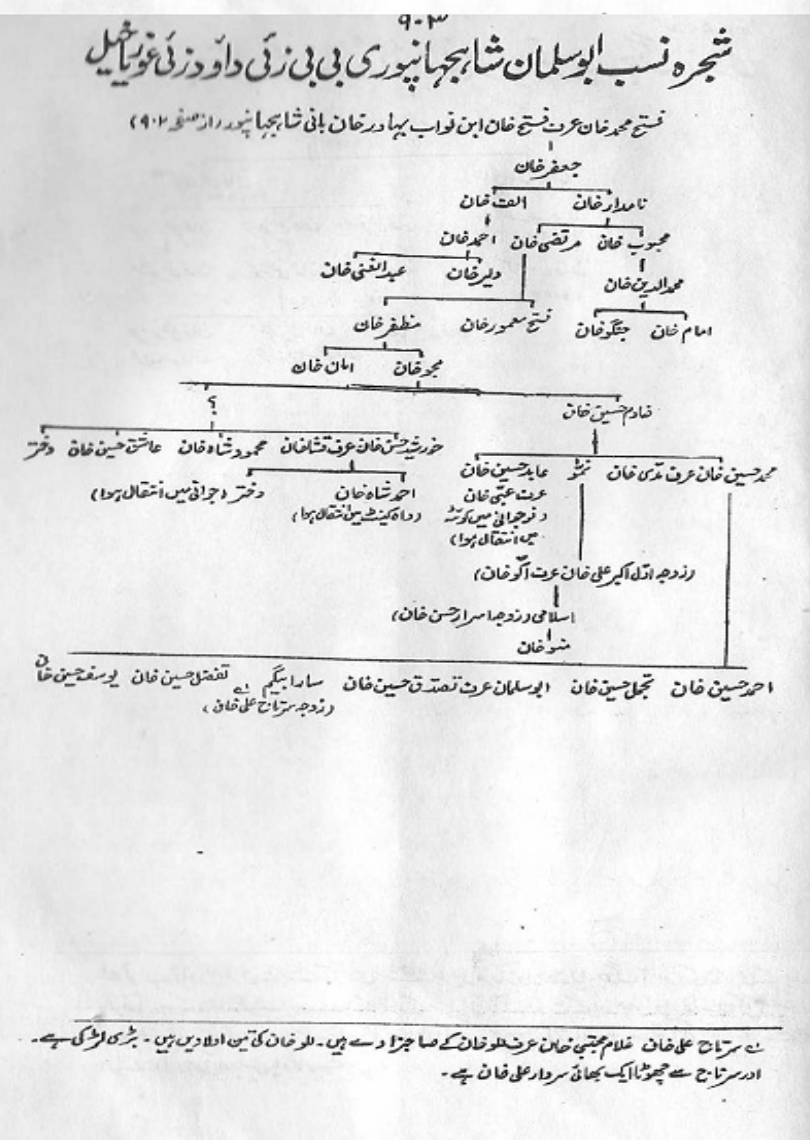 ۹۰۳
شجرہ نسب ابو سلمان شاہجہانپوری بی بی زئی داؤد زئی غوریا خیل
فتح محمد خان عرف فتح خان ابن نواب بہادر خان بانی شاہجہانپور (از صفحہ ۹۰۲)
جعفر خان
نامدار خان الف خان
محبوب خان مرتضیٰ خان احمد خان
محمد الدین خان دلیر خان عبدالغنی خان
امام خان جنگو خان فتح معمور خان مظفر خان
مجو خان امان خان
خادم حسین خان ؟
محمد حسین خان عرف مدی خان عابد حسین خان خورشید حسن خان عرف محمود شاہ خان عاشق حسین خان دختر
عرف عبّی خان احمد شاہ خان دختر (جوانی میں انتقال ہوا)
(نوجوانی میں کوئٹہ (واہ کینٹ میں انتقال ہوا)
میں انتقال ہوا)
(زوجہ اوّل اکبر علی خان عرف اکو خان)
اسلامی (زوجہ اسرار حسن خان)
منو خان
احمد حسین خان تجمل حسین خان ابو سلمان عرف تصدق حسین خان سارا بیگم تفضل حسین خان یوسف حسین خان
(زوجہ سرتاج علی خان)
سرتاج علی خان غلام مجتبیٰ خان عرف للو خان کے صاحبزادے ہیں۔ للو خان کی تین اولادیں ہیں۔ بڑی لڑکی ہے۔
اور سرتاج سے چھوٹا ایک بھائی سردار علی خان ہے۔